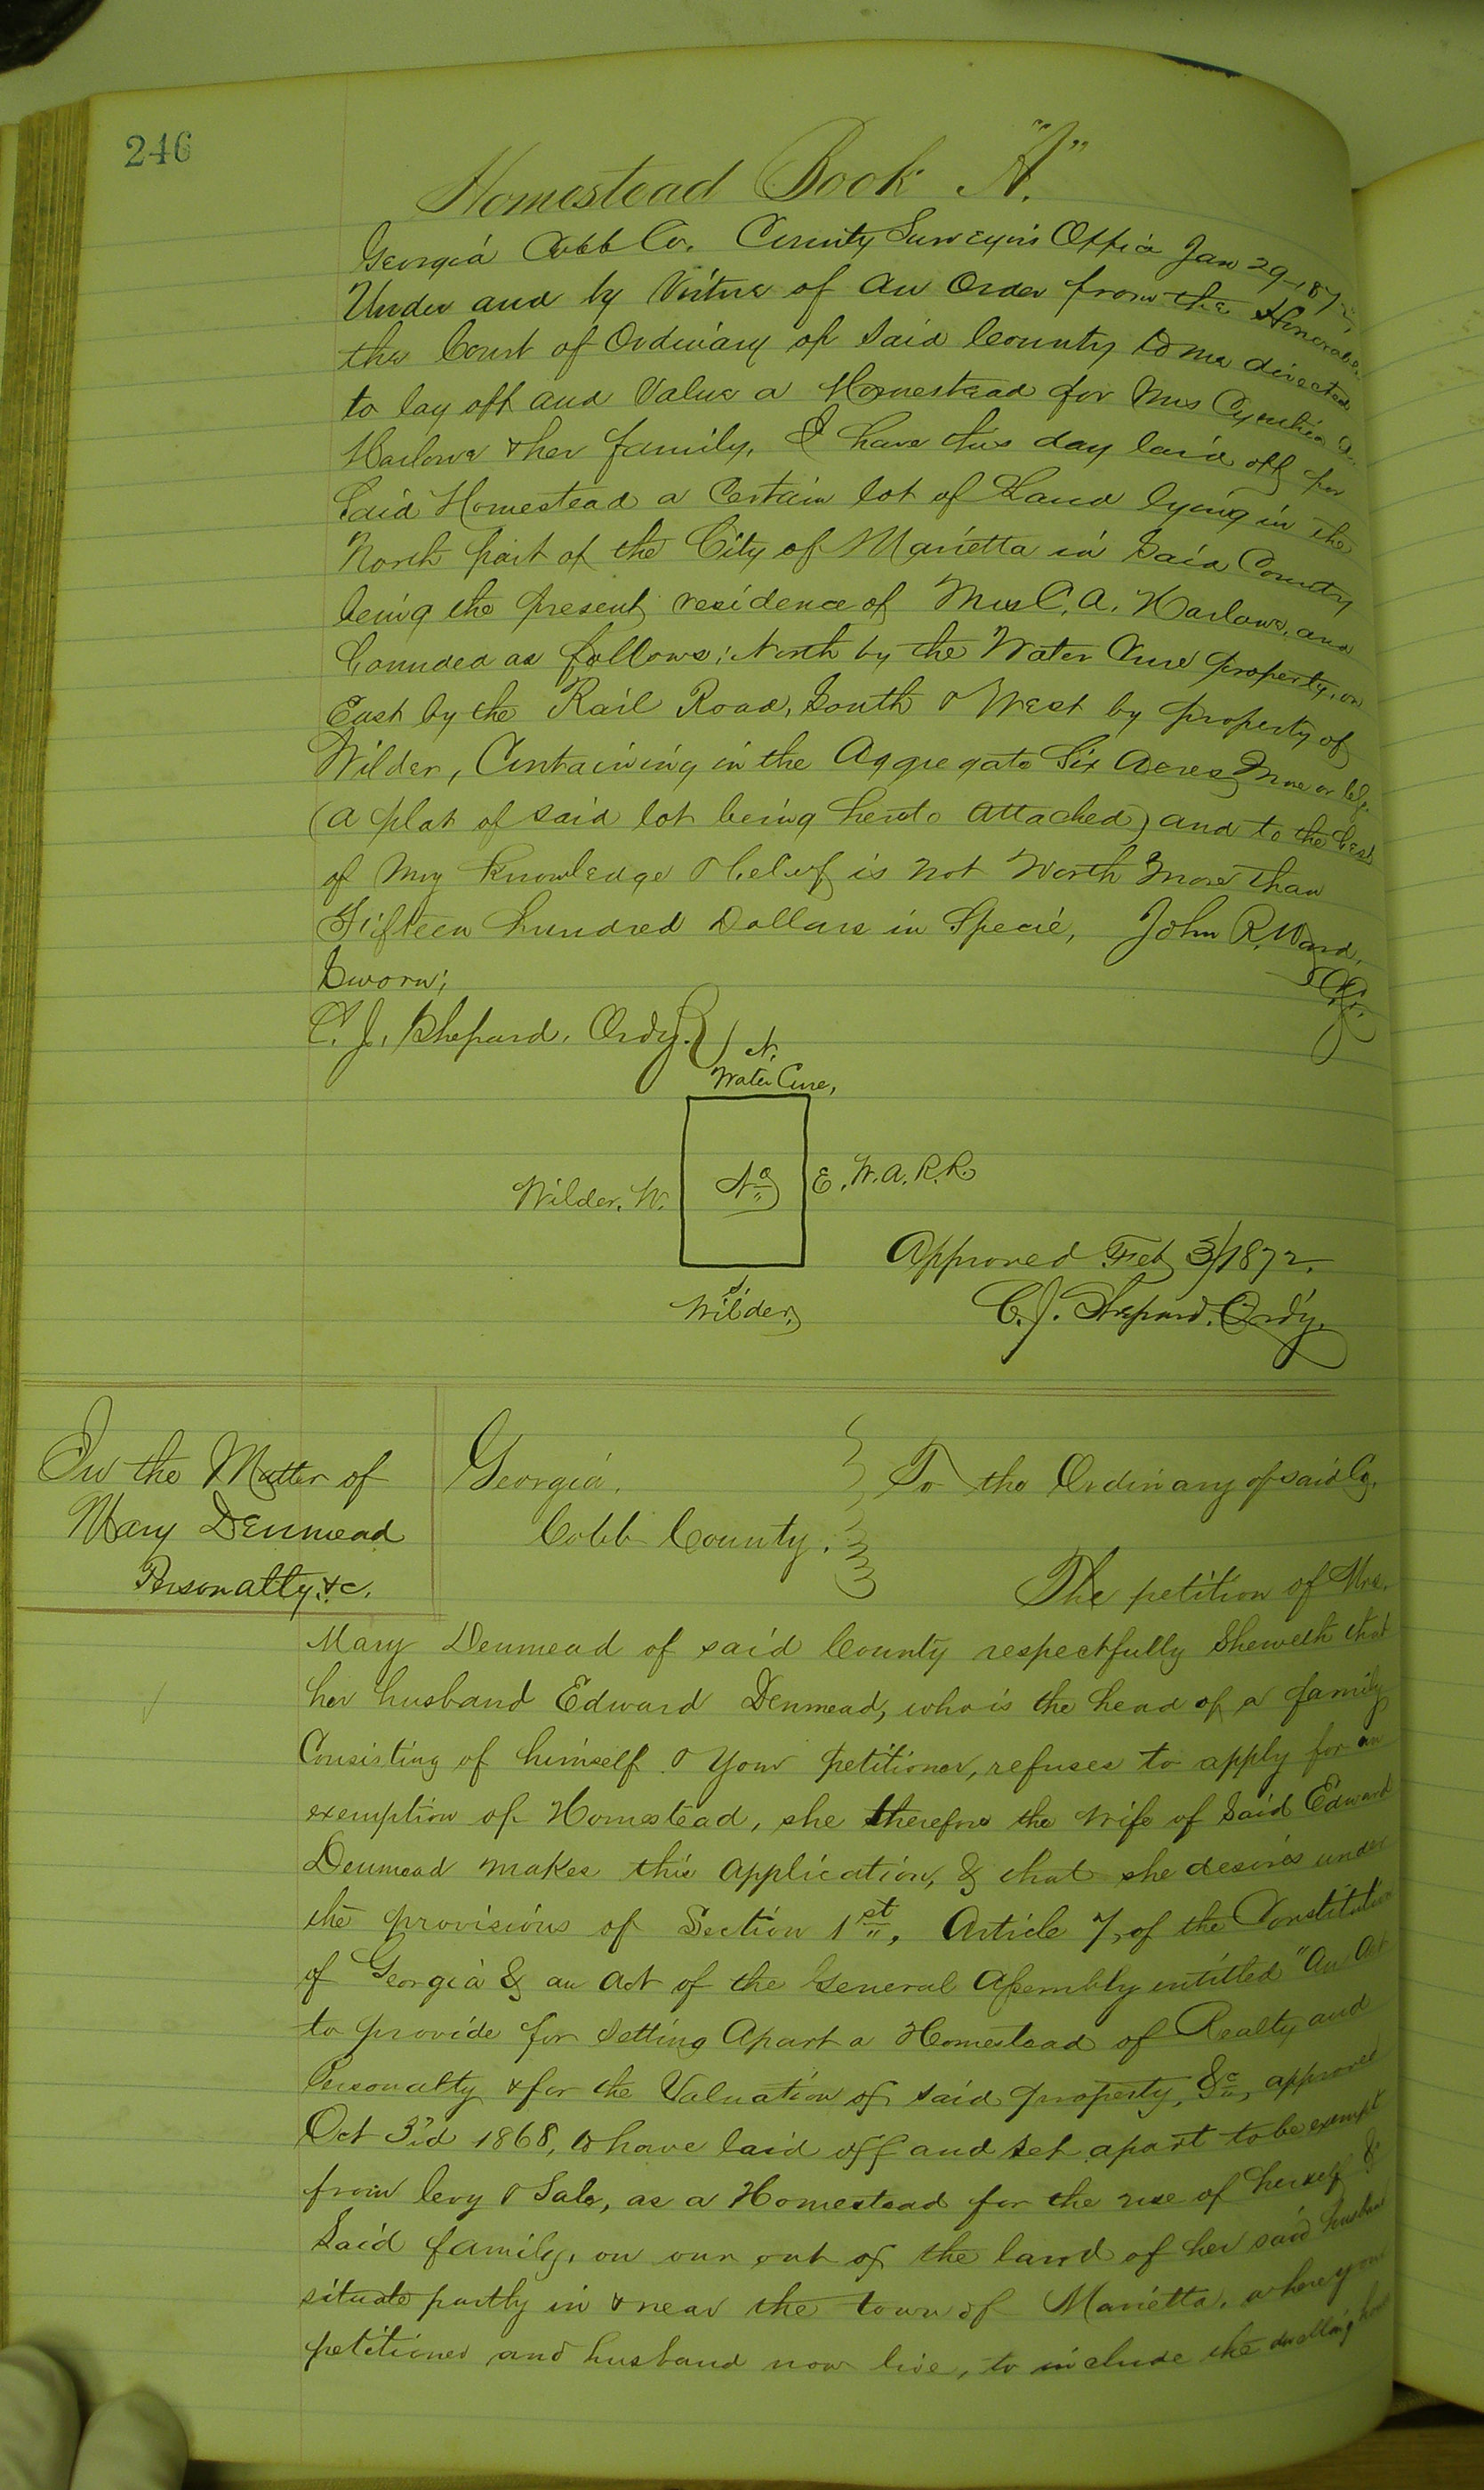 246
Homestead Book "A"
Georgia Cobb Co. County Surveyors Office Jan 29 1872,
Under and by Virtue of an Order from the Honorable
the Court of Ordinary of Said County to me directed
to lay off and Value a Homestead for Mrs Cynthia A.
Harlowe & her family, I have this day laid off for
Said Homestead a Certain lot of Land lying in the
North part of the City of Marietta in Said County
being the present residence of Mrs C. A. Harlowe, and
bounded as follows; North by the Water Cure property, on
East by the Rail Road, South & West by property of
Wilder, Containing in the Aggregate Six Acres more or less
(a plat of said lot being hereto attached) and to the best
of my Knowledge & belief is not Worth more than
Fifteen hundred Dollars in Specie, John R. Ward,
Sworn;
C. J. Shepard. Ordy.
N.
Water Cure,
Wilder. W.
E. W. A. R. R.
S.
Wilder,
Approved Feb 3/1872.
C. J. Shepard. Ordy.
In the Matter of
Mary Denmead
Personalty, &c.
Georgia,
Cobb County.
To the Ordinary of said Co.
The petition of Mrs.
Mary Denmead of said County respectfully Sheweth that
her husband Edward Denmead, who is the head of a family
Consisting of himself & Your petitioner, refuses to apply for an
exemption of Homestead, she therefore the wife of Said Edward
Denmead makes this application, & that she desires under
the provisions of Section 1st, Article 7, of the Constitution
of Georgia & an Act of the General Assembly entitled "An Act
to provide for Setting Apart a Homestead of Realty and
Personalty & for the Valuation of said property, &c, approved
Oct 3d 1868, to have laid off and set apart to be exempt
from levy & Sale, as a Homestead for the use of herself &
Said family, on our out of the land of her said husband
situate partly in & near the town of Marietta, where your
petitioner and husband now live, to include the dwelling house